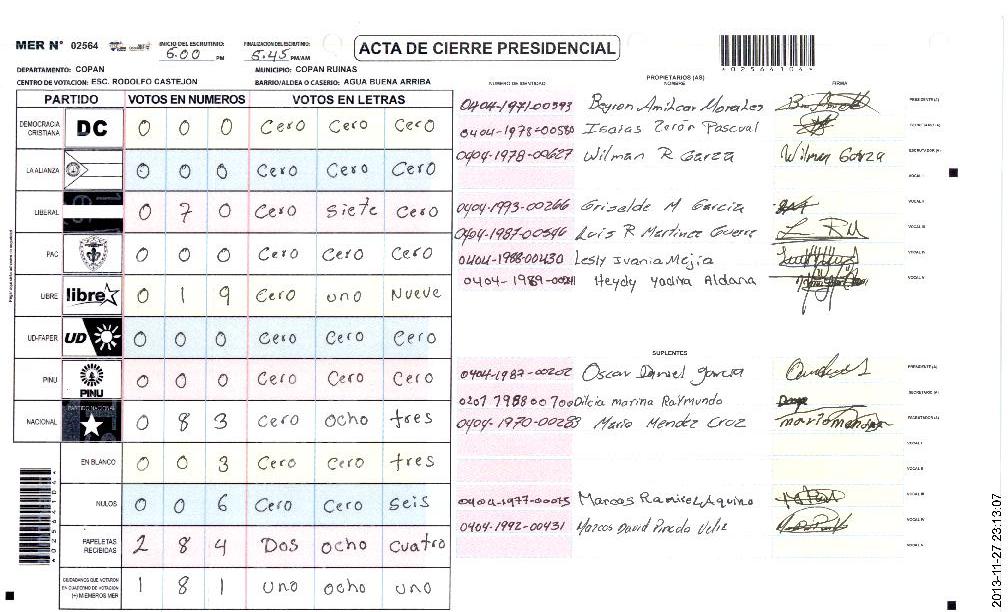 MER N° 02564
INICIO DEL ESCRUTINIO: 5:00 PM
FINALIZACION DEL ESCRUTINIO: 5:45 PM/AM
ACTA DE CIERRE PRESIDENCIAL
DEPARTAMENTO: COPAN
MUNICIPIO: COPAN RUINAS
CENTRO DE VOTACION: ESC. RODOLFO CASTEJON
BARRIO/ALDEA O CASERIO: AGUA BUENA ARRIBA
PARTIDO VOTOS EN NUMEROS VOTOS EN LETRAS
DEMOCRACIA CRISTIANA DC 0 0 0 Cero Cero Cero
LA ALIANZA 0 0 0 Cero Cero Cero
LIBERAL 0 7 0 Cero Siete Cero
PAC 0 0 0 Cero Cero Cero
LIBRE libre 0 1 9 Cero uno Nueve
UD-FAPER UD 0 0 0 Cero Cero Cero
PINU PINU 0 0 0 Cero Cero Cero
NACIONAL PARTIDO NACIONAL 0 8 3 Cero ocho tres
EN BLANCO 0 0 3 Cero Cero tres
NULOS 0 0 6 Cero Cero seis
PAPELETAS RECIBIDAS 2 8 4 Dos ocho cuatro
CIUDADANOS QUE VOTARON EN CUADERNO DE VOTACION (+) MIEMBROS MER 1 8 1 uno ocho uno
NUMERO DE IDENTIDAD PROPIETARIOS (AS) NOMBRE FIRMA
0404-1971-00393 Beyron Amilcar Morales PRESIDENTE (A)
0404-1978-00580 Isaias Zerón Pascual SECRETARIO (A)
0404-1978-00627 Wilman R Garza Wilman Garza ESCRUTADOR (A)
VOCAL I
0404-1993-00266 Griselde M Garcia VOCAL II
0404-1987-00546 Luis R Martinez Guerra VOCAL III
0404-1988-00430 Lesly Ivania Mejia VOCAL IV
0404-1989- Heydy Yadira Aldana VOCAL V
SUPLENTES
0404-1987-00202 Oscar Daniel Garcia PRESIDENTE (A)
0201 1988 00700 Dilcia Marina Raymundo SECRETARIO (A)
0404-1970-00283 Mario Mendez Cruz ESCRUTADOR (A)
VOCAL I
VOCAL II
0404-1977-00075 Marcos Ramirez Aquino VOCAL III
0404-1992-00431 Marcos David Pineda Veliz VOCAL IV
VOCAL V
2013-11-27 23:13:07